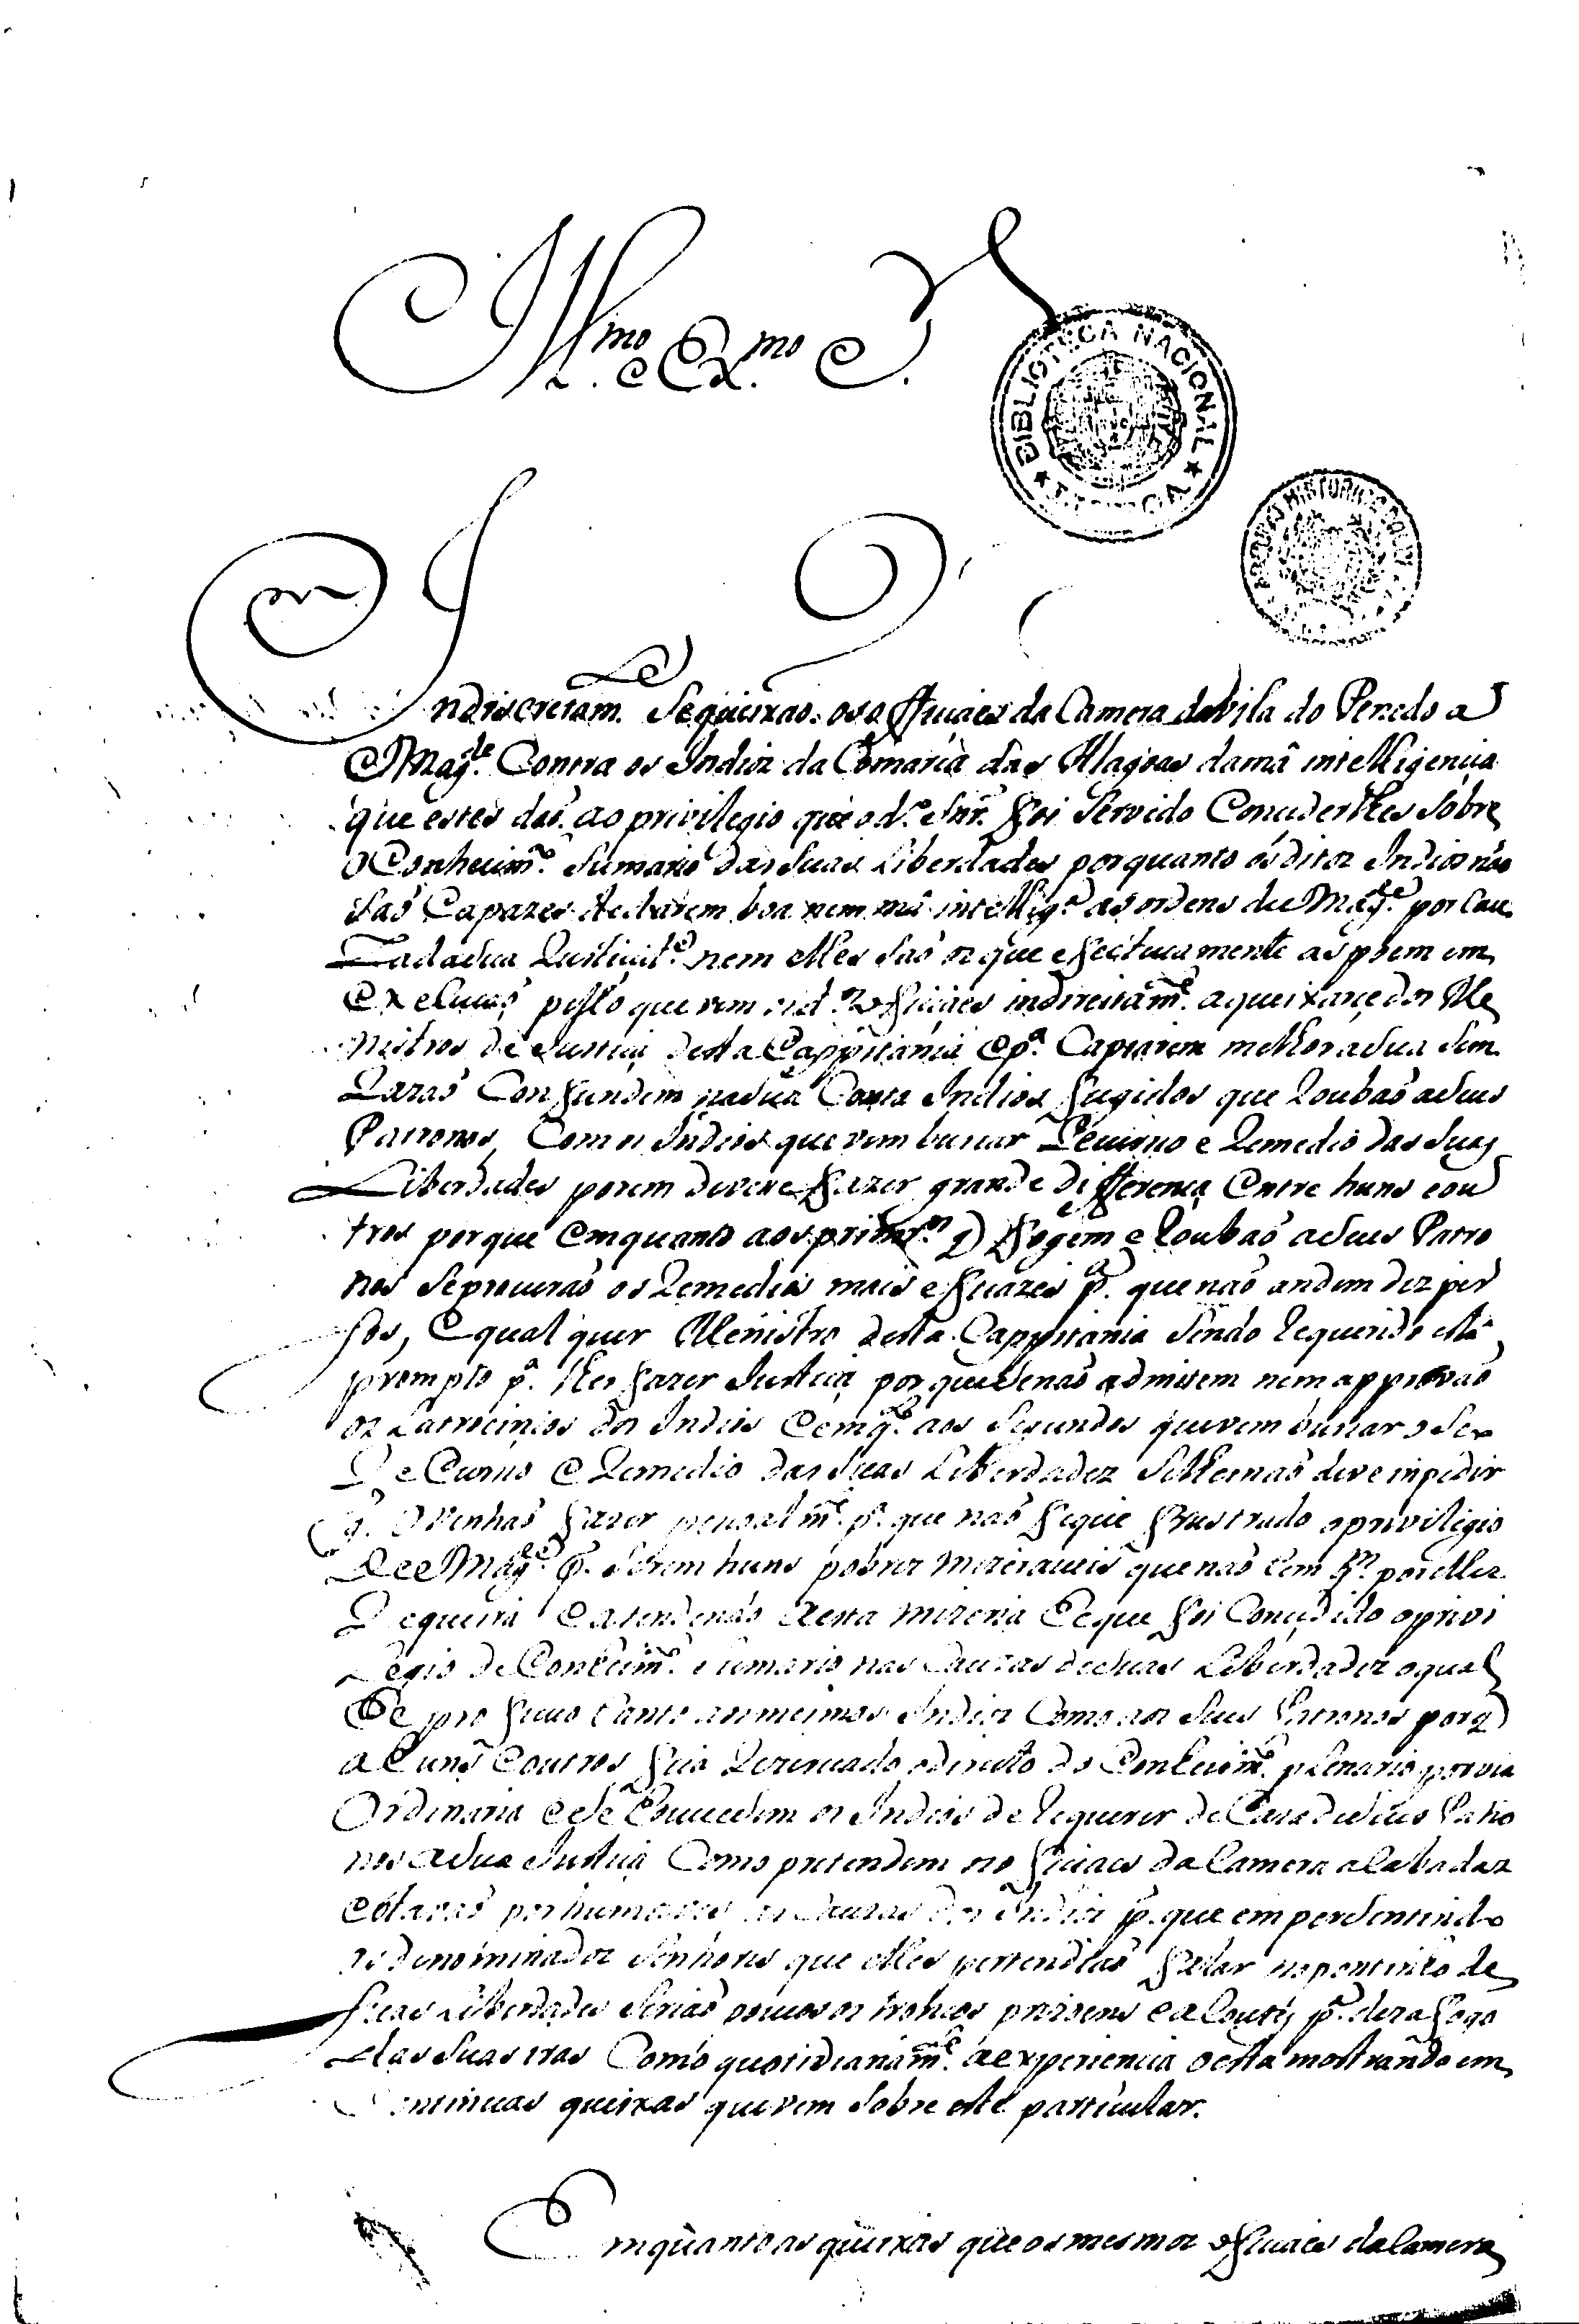 Ill.mo e Ex.mo S.
BIBLIOTECA NACIONAL
Indiscretam. Se queixaõ os officiaes da Camera da Vila do Penedo a
Mag.de Contra os Indios da Comarca das Alagoas da mâ intelligencia
que estes daõ ao privilegio que o d.o Snr. foi Servido Concederlhes Sobre
o Conhecim.to Sumario das Suas Liberdades porquanto os ditos Indios não
Saõ Capazes de darem boa nem mâ intellig.a as ordens de Mag.de por Cau
za da Sua Rusticid.e nem elles Saõ os que effectivamente as poem em
Execuçaõ pello que vem os d.os officiaes indireitam.te a queixarçe dos Me
nistros de Justiça desta Cappitania e p.a Capiarem melhor a Sua Sem
Razaõ Confundem na Sua Conta Indios fugidos que Roubaõ a Seus
Patronos, Com os Indios que vem buscar Recurso e Remedio das Suas
Liberdades porem deveçe fazer grande differença Entre huns e ou
tros porque Emquanto aos primr.os q fogem e Roubaõ a Seus Patro
nos Se procuraõ os Remedios mais efficazes p.a que naõ andem disper
Sos, e qual quer Menistro desta Cappitania Sendo Requerido está
prompto p.a lhes fazer Justiça porque Se naõ admitem nem approvaõ
os Latrocinios dos Indios e emq.to aos Segundos que vem buscar o Seu
Recurso e Remedio das Suas Liberdades Se lhe naõ deve inpedir
q. o venhaõ fazer pesoalm.te p.a que naõ fique frustrado o privilegio
de Mag.de p.a Serem huns pobres mizeraveis que naõ tem q.m por elles
Requeira e atendendo a esta mizeria he que foi Concedido o privi
Legio de Conhecim.to Sumario nas Cauzas de Suas Liberdades o qual
he proficuo tanto aos mesmos Indios Como aos Seus Patronos porq
a huns e outros fica Rezervado o direito do Conhecim.to plenario por via
Ordinaria e Se Concedem os Indios de Requerer de Caza de Seus Patro
nos a Sua Justiça Como pretendem os officiaes da Camera acabadas
Estavaõ por huma vez as Cauzas dos Indios p.a que em persentindo
os denominados Senhores que elles pertendiaõ falar no pontinho de
Suas Liberdades Seriaõ poucos os troncos prizoens e açoutes p.a dezafogo
das Suas iras Como quotidianam.te a experiencia o esta mostrando em
Continuas queixas que vem Sobre este particular.
Emquanto as queixas que os mesmos officiaes da Camera